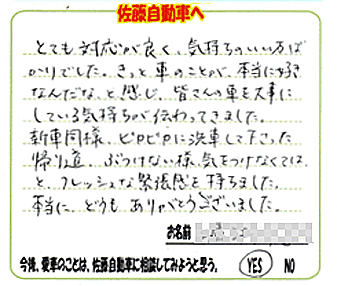 佐藤自動車へ
とても対応が良く、気持ちのいい方ば
かりでした。きっと車のことが、本当に好き
なんだな、と感じ、皆さんの車を大事に
している気持ちが伝わってきました。
新車同様、ピカピカに洗車して下さった
帰り道、ぶつけない様、気をつけなくては、
と、フレッシュな緊張感を持ちました。
本当に、どうもありがとうございました。
お名前
今後、愛車のことは、佐藤自動車に相談してみようと思う。 YES NO